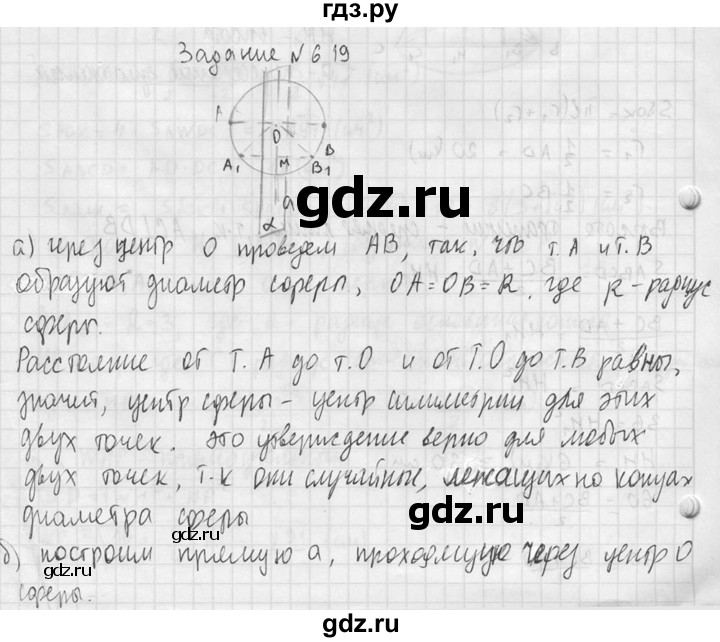 гдз.ру
Задание №6 19
A
O
A₁
M
B₁
B
a
α
gdz.ru
а) через центр О проведем АВ, так, что т.А и т.В
образуют диаметр сферы, OA=OB=R, где R-радиус
сферы.
Расстояние от т.А до т.О и от т.О до т.В равны,
значит, центр сферы - центр симметрии для этих
двух точек. это утверждение верно для любых
двух точек, т.к они случайные, лежащих на концах
диаметра сферы
gdz.ru
б) построим прямую а, проходящую через центр О
сферы.
gdz.ru